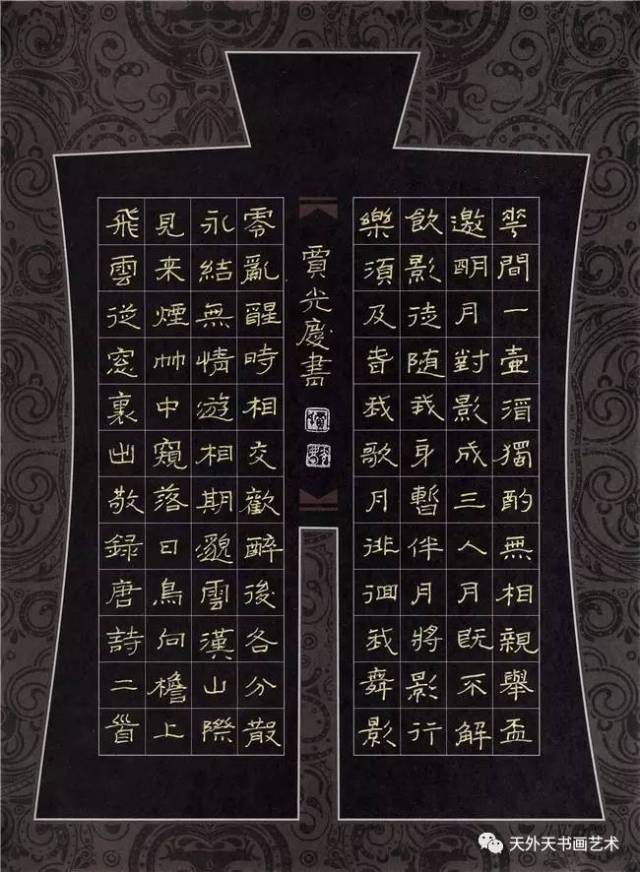 花間一壺酒獨酌無相親舉盃
邀明月對影成三人月既不解
飲影徒随我身暫伴月將影行
樂須及春我歌月徘徊我舞影
零亂醒時相交歡醉後各分散
永結無情遊相期邈雲漢山際
見来煙竹中窺落日鳥向檐上
飛雲從窓裏出敬録唐詩二首
賈光慶書
天外天书画艺术